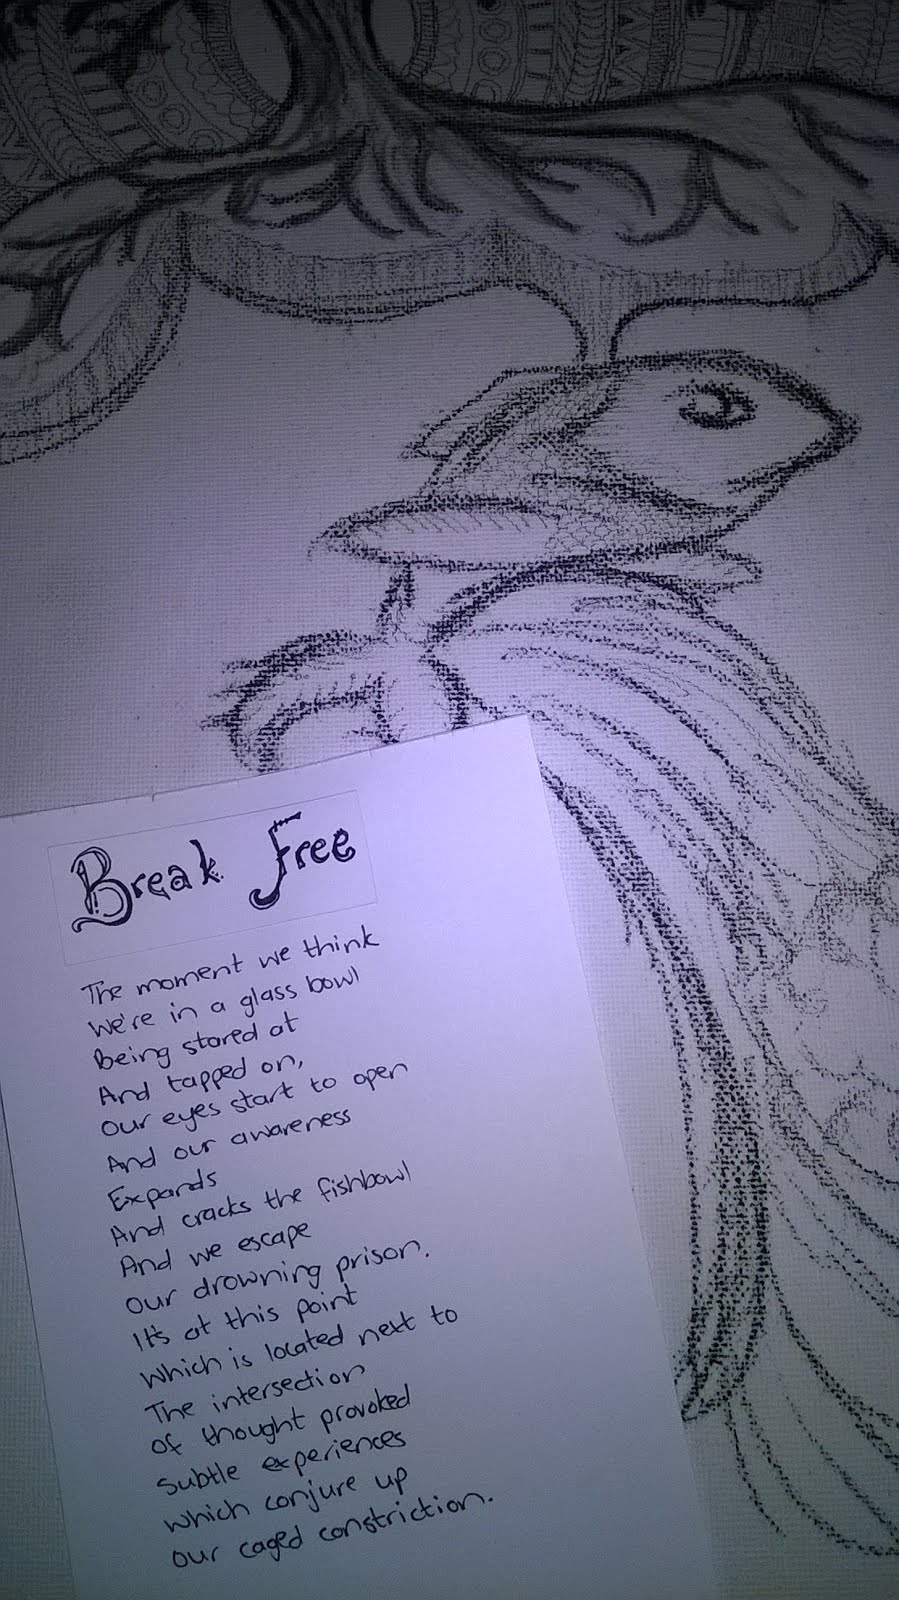 Break Free
The moment we think
We're in a glass bowl
Being stared at
And tapped on,
Our eyes start to open
And our awareness
Expands
And cracks the fishbowl
And we escape
Our drowning prison.
It's at this point
Which is located next to
The intersection
Of thought provoked
Subtle experiences
Which conjure up
Our caged constriction.